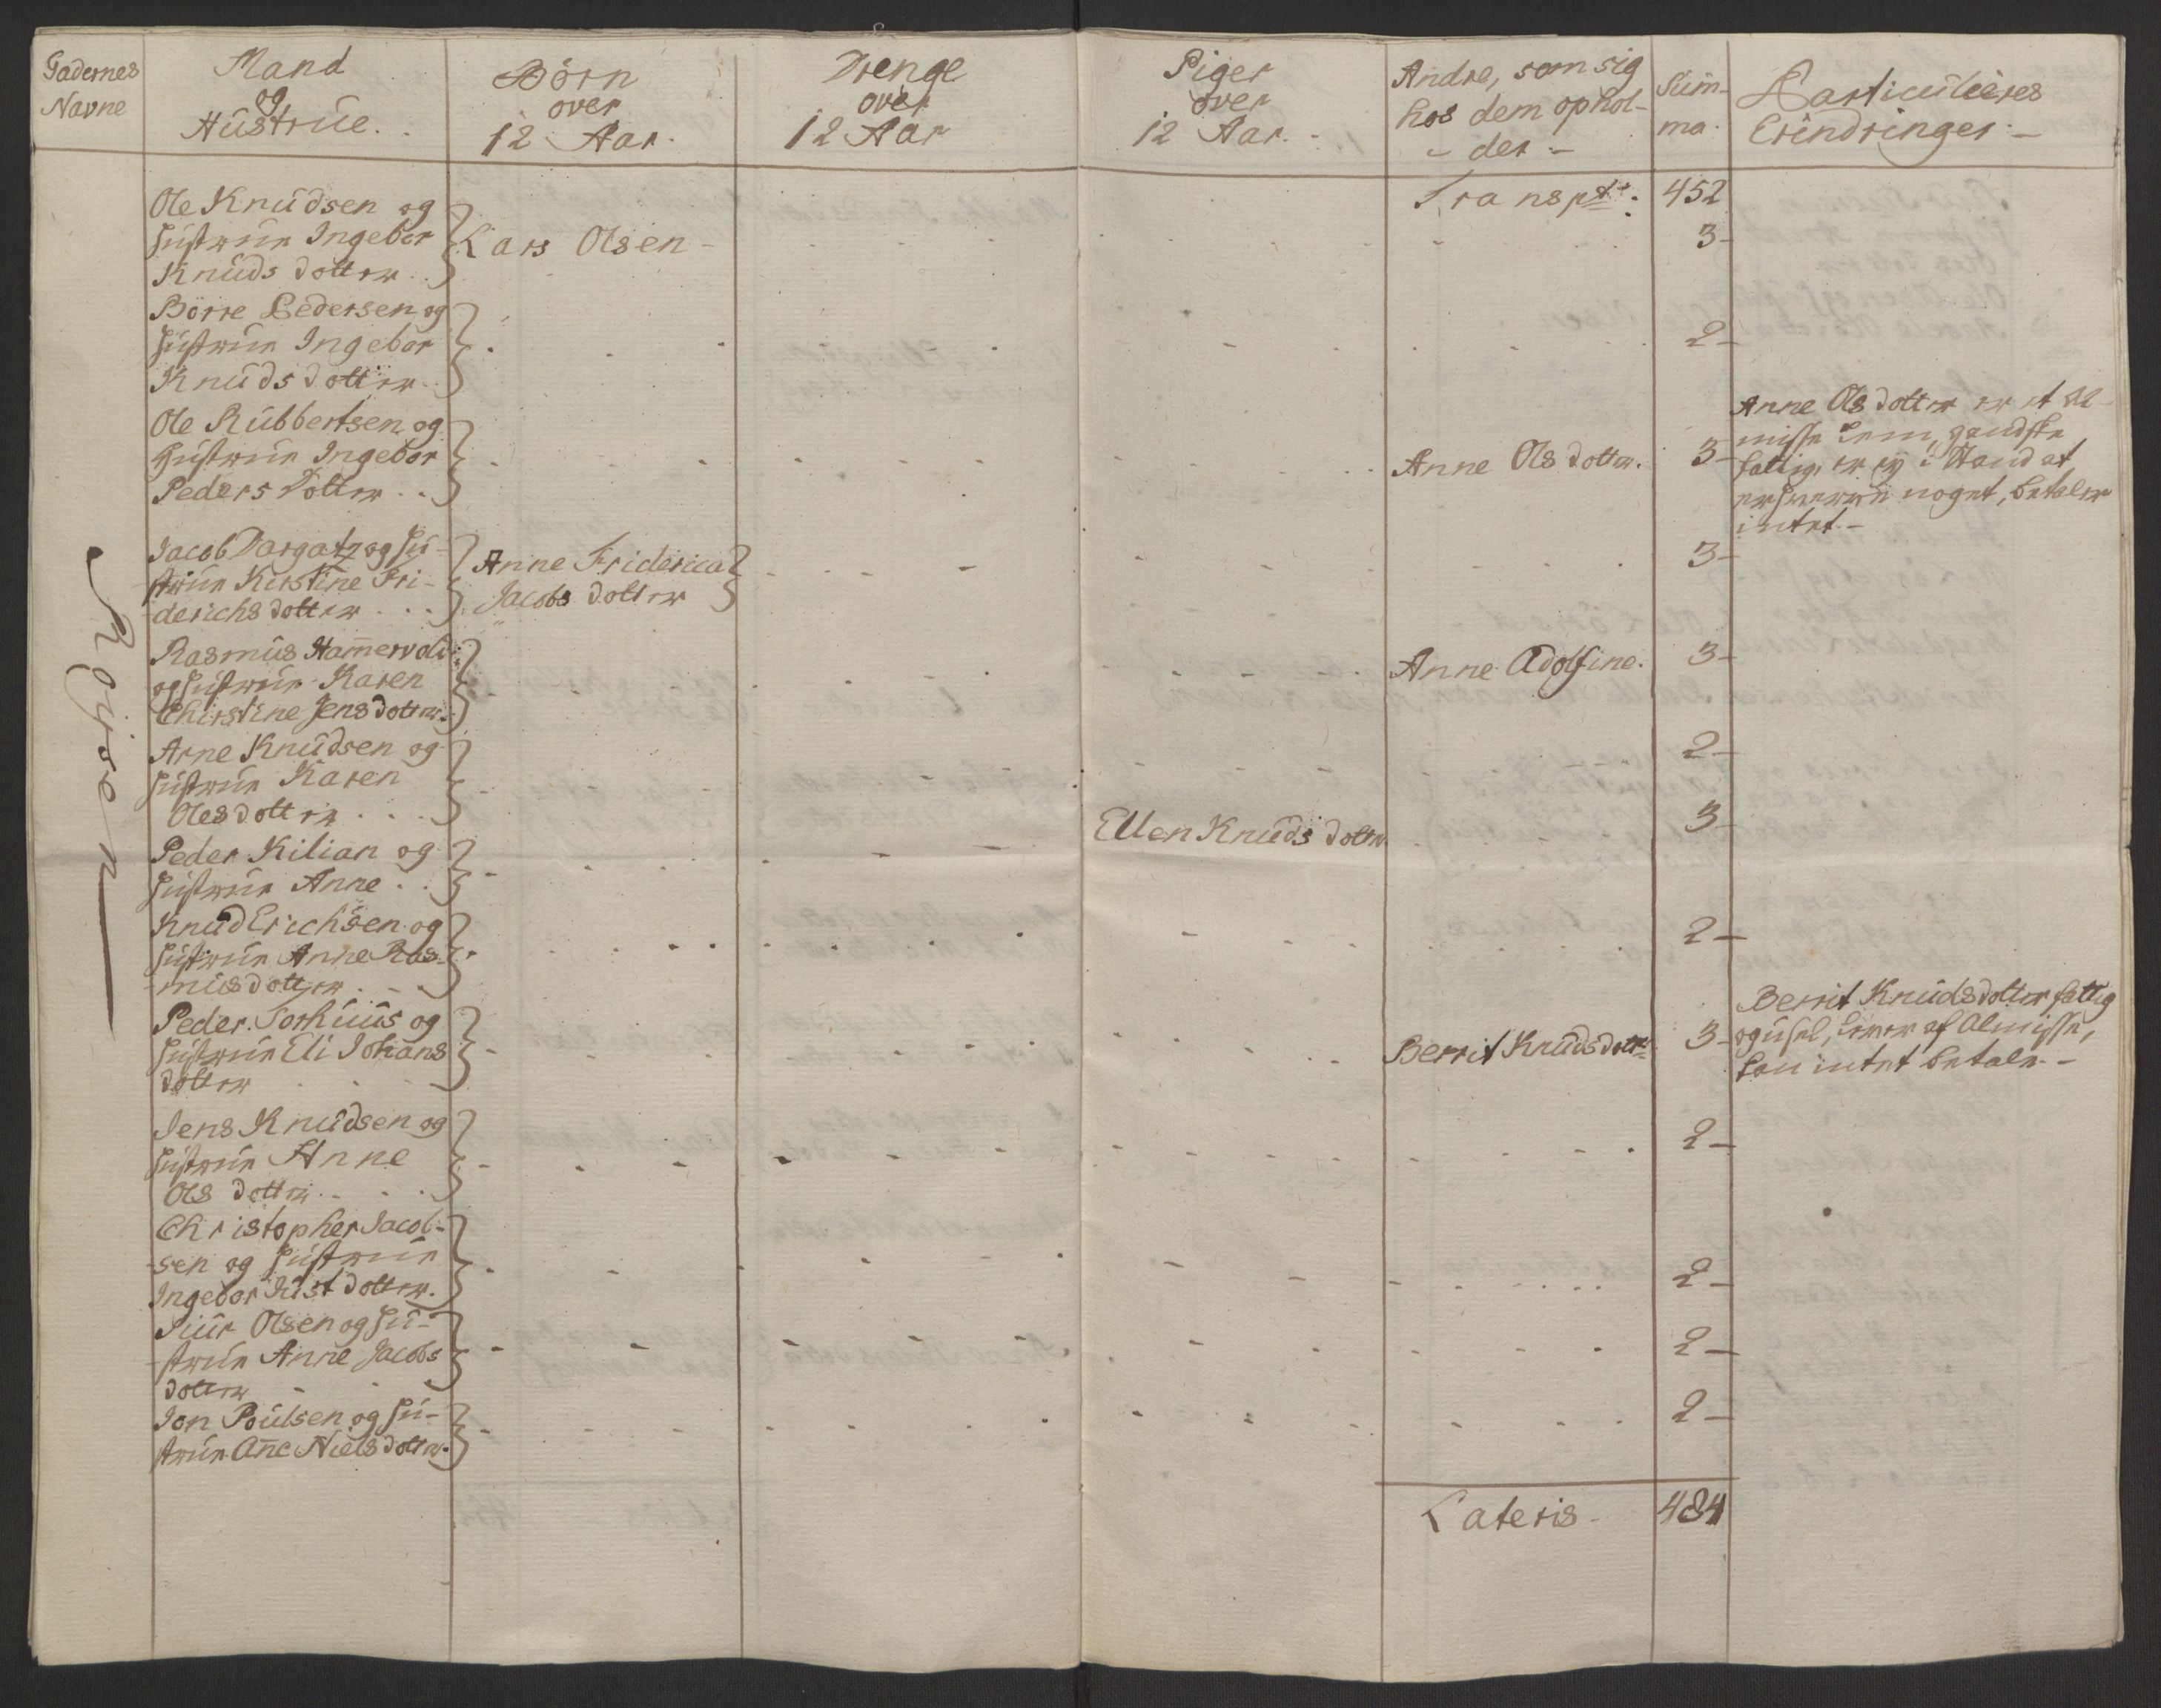 Gadernes
Navne
Mand
og
Hustrue.
Börn
over
12 Aar.
Drenge
over
12 Aar
Piger
over
12 Aar.
Andre, som sig
hos dem ophol-
- der -
Sum-
ma.
Particuliéres
Erindringer -
Transpt: 452
Röysen
Ole Knudsen og
Hustrue Ingebor
Knuds dotter
Lars Olsen -
3-
Börre Pedersen og
Hustrue Ingebor
Knuds dotter
2-
Ole Rubbertsen og
Hustrue Ingebor
Peders Dotter
Anne Ols dotter.
3-
Anne Ols dotter er et Al-
misse Lem, gandske
fattig, er ej i Stand at
erhverve noget, betaler
intet.-
Jacob Dargatz og Hu-
strue Kirstine Fri-
derichs dotter
Anne Friderica
Jacobs dotter
3-
Rasmus Hamervold
og Hustrue Karen
Chirstine Jens dotter.
Anne Adolfine.
3-
Arne Knudsen og
Hustrue Karen
Olesdotter
2-
Peder Kilian og
Hustrue Anne
Ellen Knuds dotter
3-
Knud Erichsen og
Hustrue Anne Ras-
musdotter
2-
Peder Torhuus og
Hustrue Eli Johans
dotter
Berrit Knudsdotter
3-
Berrit Knudsdotter fattig
og usel, lever af Almisse,
kan intet betale.-
Jens Knudsen og
Hustrue Anne
Ols dotter
2-
Christopher Jacob-
sen og Hustrue
Ingebor Just dotter.
2-
Siur Olsen og Hu-
strue Anne Jacobs
dotter
2-
Jon Poulsen og Hu-
strue Ane Niels dotter.
2-
Lateris - 484